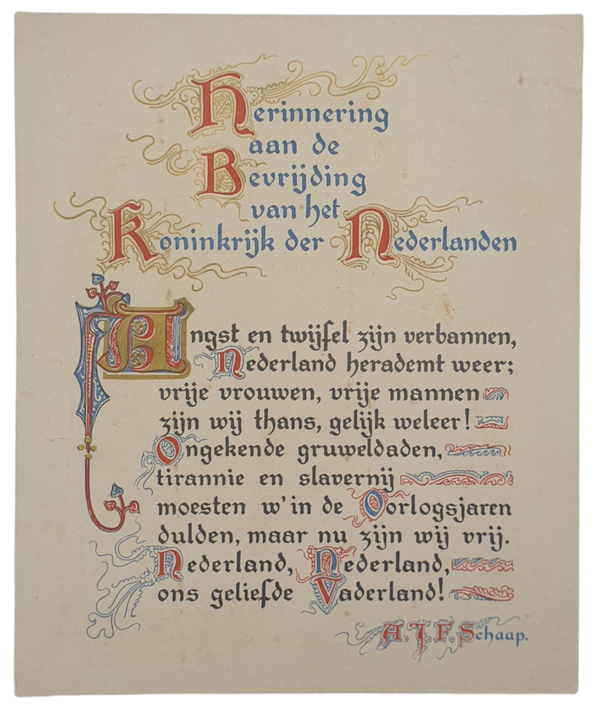 Herinnering
aan de
Bevrijding
van het
Koninkrijk der Nederlanden
Angst en twijfel zijn verbannen,
Nederland herademt weer;
vrije vrouwen, vrije mannen
zijn wij thans, gelijk weleer!
Ongekende gruweldaden,
tirannie en slavernij
moesten w'in de Oorlogsjaren
dulden, maar nu zijn wij vrij.
Nederland, Nederland,
ons geliefde Vaderland!
A.J.F. Schaap.